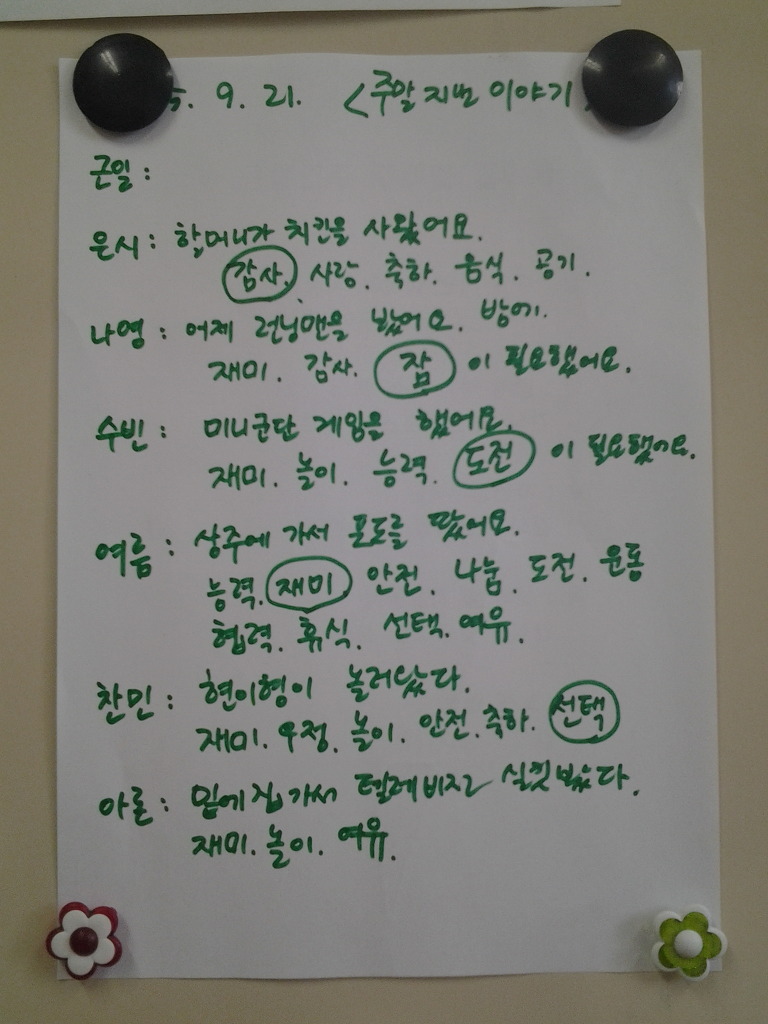 5. 9. 21. <주말 지낸 이야기
근일 :
은시 : 할머니가 치킨을 사왔어요.
감사. 사랑. 축하. 음식. 공기.
나영 : 어제 런닝맨을 봤어요. 밤에.
재미. 감사. 잠 이 필요했어요.
수빈 : 미니군단 게임을 했어요.
재미. 놀이. 능력. 도전 이 필요했어요.
여름 : 상주에 가서 포도를 땄어요.
능력. 재미 안전. 나눔. 도전. 운동
협력. 휴식. 선택. 여유.
찬민 : 현이형이 놀러왔다.
재미. 우정. 놀이. 안전. 축하. 선택
아론 : 밑에 집 가서 텔레비전 실컷 봤다.
재미. 놀이. 여유.